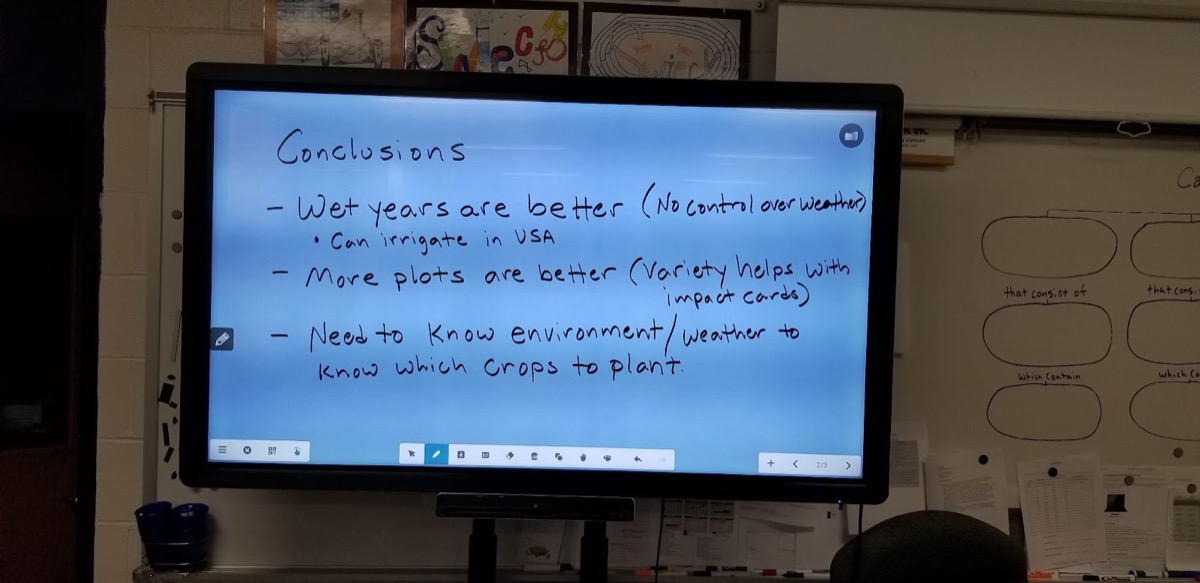 Conclusions
- Wet years are better (No control over weather)
• Can irrigate in USA
- More plots are better (Variety helps with
impact cards)
- Need to know environment/weather to
know which crops to plant.
2/3
that consist of
which contain